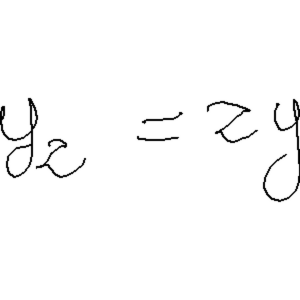 y_z = zy